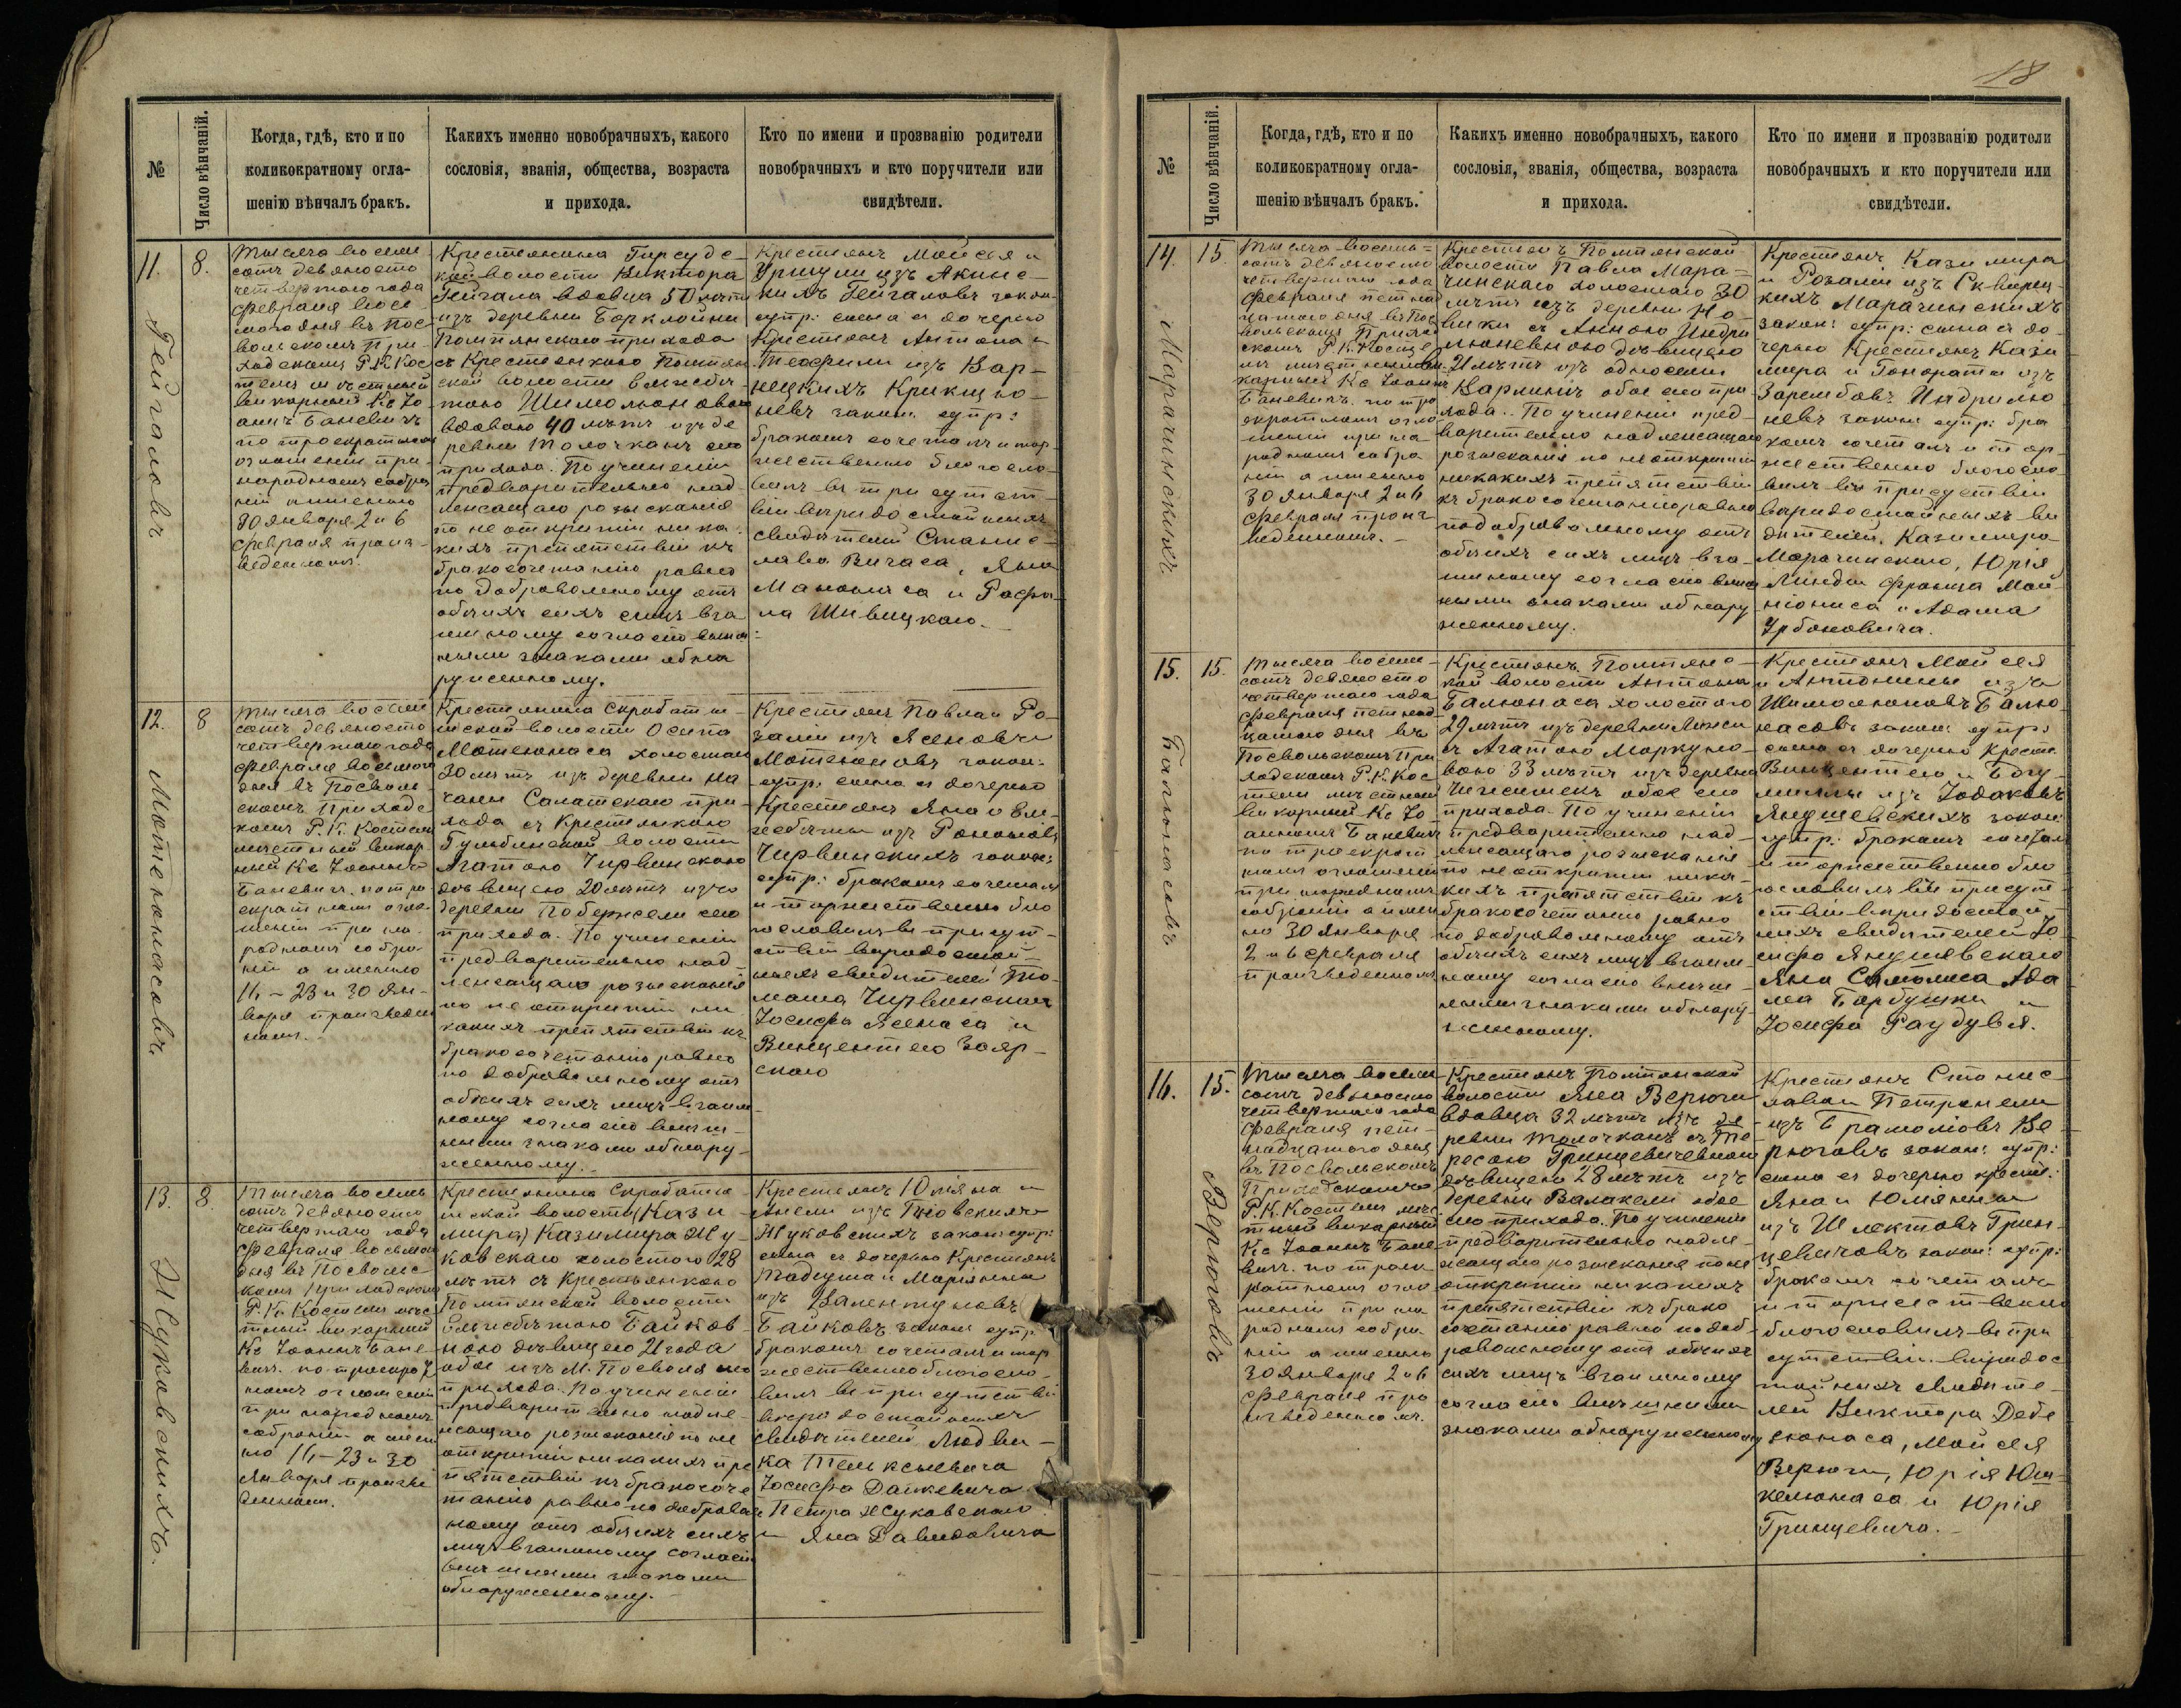 18
№
Число вѣнчаній.
Когда, гдѣ, кто и по
коликократному огла-
шенію вѣнчалъ бракъ.
Какихъ именно новобрачныхъ, какого
сословія, званія, общества, возраста
и прихода.
Кто по имени и прозванію родители
новобрачныхъ и кто поручители или
свидѣтели.
11.
Гейгаловъ
8.
Тысяча восемь
сотъ девяносто
четвертаго года
Февраля вось
маго дня въ Пос
вольскомъ При-
ходскомъ Р.К. Кос
телѣ мѣстный
викарный Кс. Іо
аннъ Баневичъ
по троекратномъ
оглашеніи при
народномъ собра
ніи а именно
30 Января 2 и 6
Февраля произ-
веденномъ.
Крестьянина Гирсудс-
кой волости Виктора
Гейгала вдовца 50 лѣтъ
изъ деревни Борклойни
Помпянскаго прихода
съ Крестьянкою Помпян
ской волости Елисабе-
тою Шимольоновою
вдовою 40 лѣтъ изъ де
ревни Толочканъ сего
прихода. По учиненіи
предварительно над-
лежащаго розысканія
по не открытіи ника-
кихъ препятствій къ
бракосочетанію равно
по добровольному отъ
обоихъ сихъ лицъ вза
имному согласію внѣш
ними знаками обна
руженному.
Крестьянъ Мойсея и
Уршули изъ Акинс-
кихъ Гейгаловъ закон.
супр: сына съ дочерью
Крестьянъ Антона и
Теофили изъ Вар-
нецкихъ Крикщю-
невъ закон: супр:
бракомъ сочеталъ и тор
жественно благосло-
вилъ въ присутст-
віи вѣридостойныхъ
свидѣтелей Станис-
лава Вичаса, Яна
Манониса и Рафа
ла Шивицкаго.
12.
Мотеюнасовъ
8
Тысяча восемь
сотъ девяносто
четвертаго года
Февраля восьмаго
дня въ Посволь-
скомъ Приходс
комъ Р.К. Костелѣ
мѣстный викар
ный Кс. Іоаннъ
Баневичъ по тро
екратномъ огла-
шеніи при на-
родномъ собра-
ніи а именно
16 – 23 и 30 Ян-
варя произведен
номъ.
Крестьянина Скробатш-
шской волости Осипа
Мотеюнаса холостаго
30 лѣтъ изъ деревни На
чаны Салатскаго при-
хода съ Крестьянкою
Гульбинской волости
Агатою Чирвинскою
дѣвицею 20 лѣтъ изъ
деревни Побержели сего
прихода. По учиненіи
предварительно над-
лежащаго розысканія
по не открытіи ни
какихъ препятствій къ
бракосочетанію равно
по добровольному отъ
обоихъ сихъ лицъ взаим-
ному согласію внѣш-
ними знаками обнару-
женному.
Крестьянъ Павла и Ро-
заліи изъ Ясеновъ
Мотеюновъ закон:
супр: сына съ дочерью
Крестьянъ Яна и Ели-
себеты изъ Рономовъ
Чирвинскихъ закон:
супр: бракомъ сочеталъ
и торжественно бла
гословилъ въ присут-
ствіи вѣридостой-
ныхъ свидѣтелей То-
маша Чирвинскаго
Іосифа Ясенаса и
Винцентаго Заяр-
скаго
13.
Жуковскихъ.
8.
Тысяча восемь
сотъ девяносто
четвертаго года
Февраля восьмаго
дня въ Посвольс-
комъ Приходскомъ
Р.К. Костелѣ мѣс
тный викарный
Кс. Іоаннъ Бане-
вичъ по троекрат
номъ оглашеніи
при народномъ
собраніи а имен
но 16 – 23 и 30
Января произве
денномъ.
Крестьянина Скробатш-
шской волости (Кази-
мира) Казимира Жу-
ковскаго холостаго 28
лѣтъ съ Крестьянкою
Помпянской волости
Елисабетою Байков-
ною дѣвицею 21 года
обое изъ М. Посволя сего
прихода. По учиненіи
предварительно надле-
жащаго розысканія по не
открытіи никакихъ пре
пятствій къ бракосоче
танію равно по добровол
ному отъ обоихъ сихъ
лицъ взаимному согласію
внѣшними знаками
обнаруженному.
Крестьянъ Юліяна и
Анели изъ Гловскихъ
Жуковскихъ закон: супр:
сына съ дочерью Крестьянъ
Тадеуша и Маріянны
изъ Валентуновъ
Байковъ закон: супр:
бракомъ сочеталъ и тор
жественно благосло-
вилъ въ присутствіи
вѣридостойныхъ
свидѣтелей Людви-
ка Тельксневича
Іосифа Данкевича
Петра Жуковскаго
и Яна Давидовича
№
Число вѣнчаній.
Когда, гдѣ, кто и по
коликократному огла-
шенію вѣнчалъ бракъ.
Какихъ именно новобрачныхъ, какого
сословія, званія, общества, возраста
и прихода.
Кто по имени и прозванію родители
новобрачныхъ и кто поручители или
свидѣтели.
14.
Марачинскихъ
15.
Тысяча восемь-
сотъ девяносто
четвертаго года
Февраля пятнад
цатаго дня въ Пос
вольскомъ Приход
скомъ Р.К. Косте
лѣ мѣстный ви
карный Кс. Іоаннъ
Баневичъ по тро
екратномъ огла
шеніи при на-
родномъ собра
ніи а именно
30 Января 2 и 6
Февраля произ
веденномъ.
Крестьянъ Помпянской
волости Павла Мара-
чинскаго холостаго 30
лѣтъ изъ деревни Но-
вики съ Анною Индри
люневною дѣвицею
21 лѣтъ изъ однселіи
Кармины обое сего при
хода. По учиненіи пред-
варительно надлежащаго
розысканія по не открытіи
никакихъ препятствій
къ бракосочетанію равно
по добровольному отъ
обоихъ сихъ лицъ вза-
имному согласію внѣш
ними знаками обнару
женному.
Крестьянъ Казимира
и Розаліи изъ Сквирец-
кихъ Марачинскихъ
закон: супр: сына съ до-
черью Крестьянъ Кази
мира и Гонораты изъ
Зарембовъ Индрилю
невъ закон: супр: бра
комъ сочеталъ и тор-
жественно благосло
вилъ въ присутствіи
вѣридостойныхъ сви
дѣтелей, Казимира
Марачинскаго, Юрія
Линди Франца Май
ніониса и Адама
Урбоновича.
15.
Балюнасовъ
15.
Тысяча восемь-
сотъ девяносто
четвертаго года
Февраля пятнад
цатаго дня въ
Посвольскомъ При
ходскомъ Р.К. Кос
телѣ мѣстный
викарный Кс. Іо-
аннъ Баневичъ
по троекрат
номъ оглашеніи
при народномъ
собраніи а имен
но 30 Января
2 и 6 Февраля
произведенномъ
Крестьянъ Помпянс-
кой волости Антона
Балюнаса холостаго
29 лѣтъ изъ деревни
съ Агатою Маркуно-
вою 33 лѣтъ изъ деревни
обое сего
прихода. По учиненіи
предварительно над-
лежащаго розысканія
по не открытіи ника-
кихъ препятствій къ
бракосочетанію равно
по добровольному отъ
обоихъ сихъ лицъ взаим-
ному согласію внѣш-
ними знаками обнару
женному.
Крестьянъ Мойсея
и Антонины изъ
Шимолюновъ Балю
насовъ закон: супр:
сына съ дочерью Кресть.
Винцентего и Богу-
милы изъ Іодаковъ
Янушевскихъ закон:
супр: бракомъ сочеталъ
и торжественно бла
гословилъ въ присут-
ствіи вѣридостой-
ныхъ свидѣтелей Іо
сифа Янушевскаго
Яна Самолиса Ада
ма Барбушки и
Іосифа Раудувя.
16.
Верюговъ
15.
Тысяча восемь
сотъ девяносто
четвертаго года
Февраля пят-
надцатаго дня
въ Посвольскомъ
Приходскомъ
Р.К. Костелѣ мѣс
тный викарный
Кс. Іоаннъ Бане-
вичъ по троек
ратномъ огла
шеніи при на
родномъ собра-
ніи а именно
30 Января 2 и 6
Февраля про
изведенномъ.
Крестьянъ Помпянской
волости Яна Верюги
вдовца 32 лѣтъ изъ де
ревни Толочканъ съ Те
ресою Гринцевичевною
дѣвицею 28 лѣтъ изъ
деревни Валакели обое
сего прихода. По учиненіи
предварительно надле-
жащаго розысканія по не
открытіи никакихъ
препятствій къ брако
сочетанію равно по доб-
ровольному отъ обоихъ
сихъ лицъ взаимному
согласію внѣшними
знаками обнаруженному
Крестьянъ Станис-
лава и Петронели
изъ Грамоліовъ Ве-
рюговъ закон: супр:
сына съ дочерью кресть:
Яна и Юліянны
изъ Шлектовъ Грин-
цевичовъ закон: супр:
бракомъ сочеталъ
и торжественно
благословилъ въ при
сутствіи вѣридос
тойныхъ свидѣте-
лей Виктора Дебе
сюнаса, Мойсея
Верюги, Юрія Юш-
келюнаса и Юрія
Гринцевича.